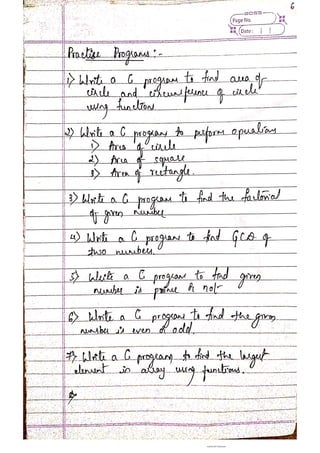 6
Page No.
Date: | |
Practise Programs:-
1) Write a C program to find area of
circle and circumference of circle
using functions
2) Write a C program to perform operations
1) Area of circle
2) Area of square
3) Area of rectangle.
3) Write a C program to find the factorial
of given number
4) Write a C program to find GCD of
two numbers.
5) Write a C program to find given
number is prime or not
6) Write a C program to find the given
number is even or odd.
7) Write a C program to find the largest
element in array using functions.